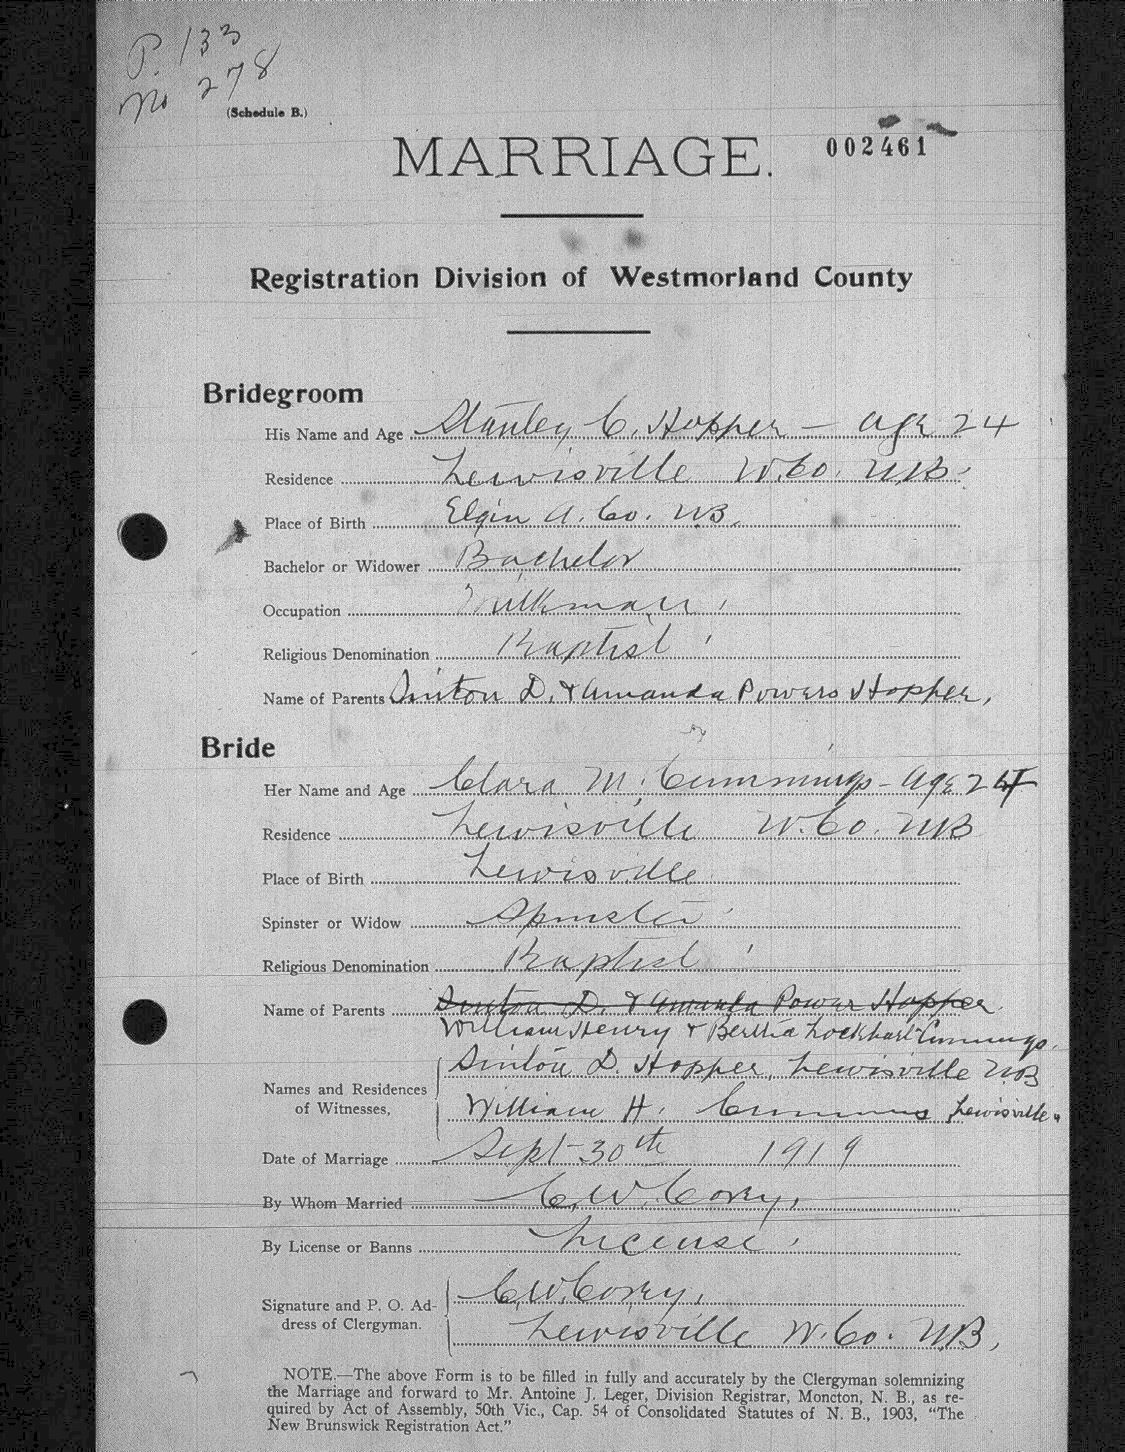 P. 133
No 278
(Schedule B.)
MARRIAGE.
002461
Registration Division of Westmorland County
Bridegroom
His Name and Age Stanley C. Hopper - age 24
Residence Lewisville W. Co. N.B.
Place of Birth Elgin A. Co. N.B.
Bachelor or Widower Bachelor
Occupation Milkman
Religious Denomination Baptist
Name of Parents Sinton D. & Amanda Powers Hopper,
Bride
Her Name and Age Clara M. Cummings - Age 24
Residence Lewisville W. Co. N.B
Place of Birth Lewisville
Spinster or Widow Spinster
Religious Denomination Baptist
Name of Parents Sinton D. & Amanda Power Hopper
William Henry & Bertha Lockhart Cummings.
Names and Residences of Witnesses, Sinton D. Hopper, Lewisville N.B
William H. Cummings Lewisville
Date of Marriage Sept 30th 1919
By Whom Married C. W. Corey,
By License or Banns License
Signature and P. O. Ad- C. W. Corey,
dress of Clergyman. Lewisville W. Co. N.B,
NOTE.—The above Form is to be filled in fully and accurately by the Clergyman solemnizing
the Marriage and forward to Mr. Antoine J. Leger, Division Registrar, Moncton, N. B., as re-
quired by Act of Assembly, 50th Vic., Cap. 54 of Consolidated Statutes of N. B., 1903, “The
New Brunswick Registration Act.”